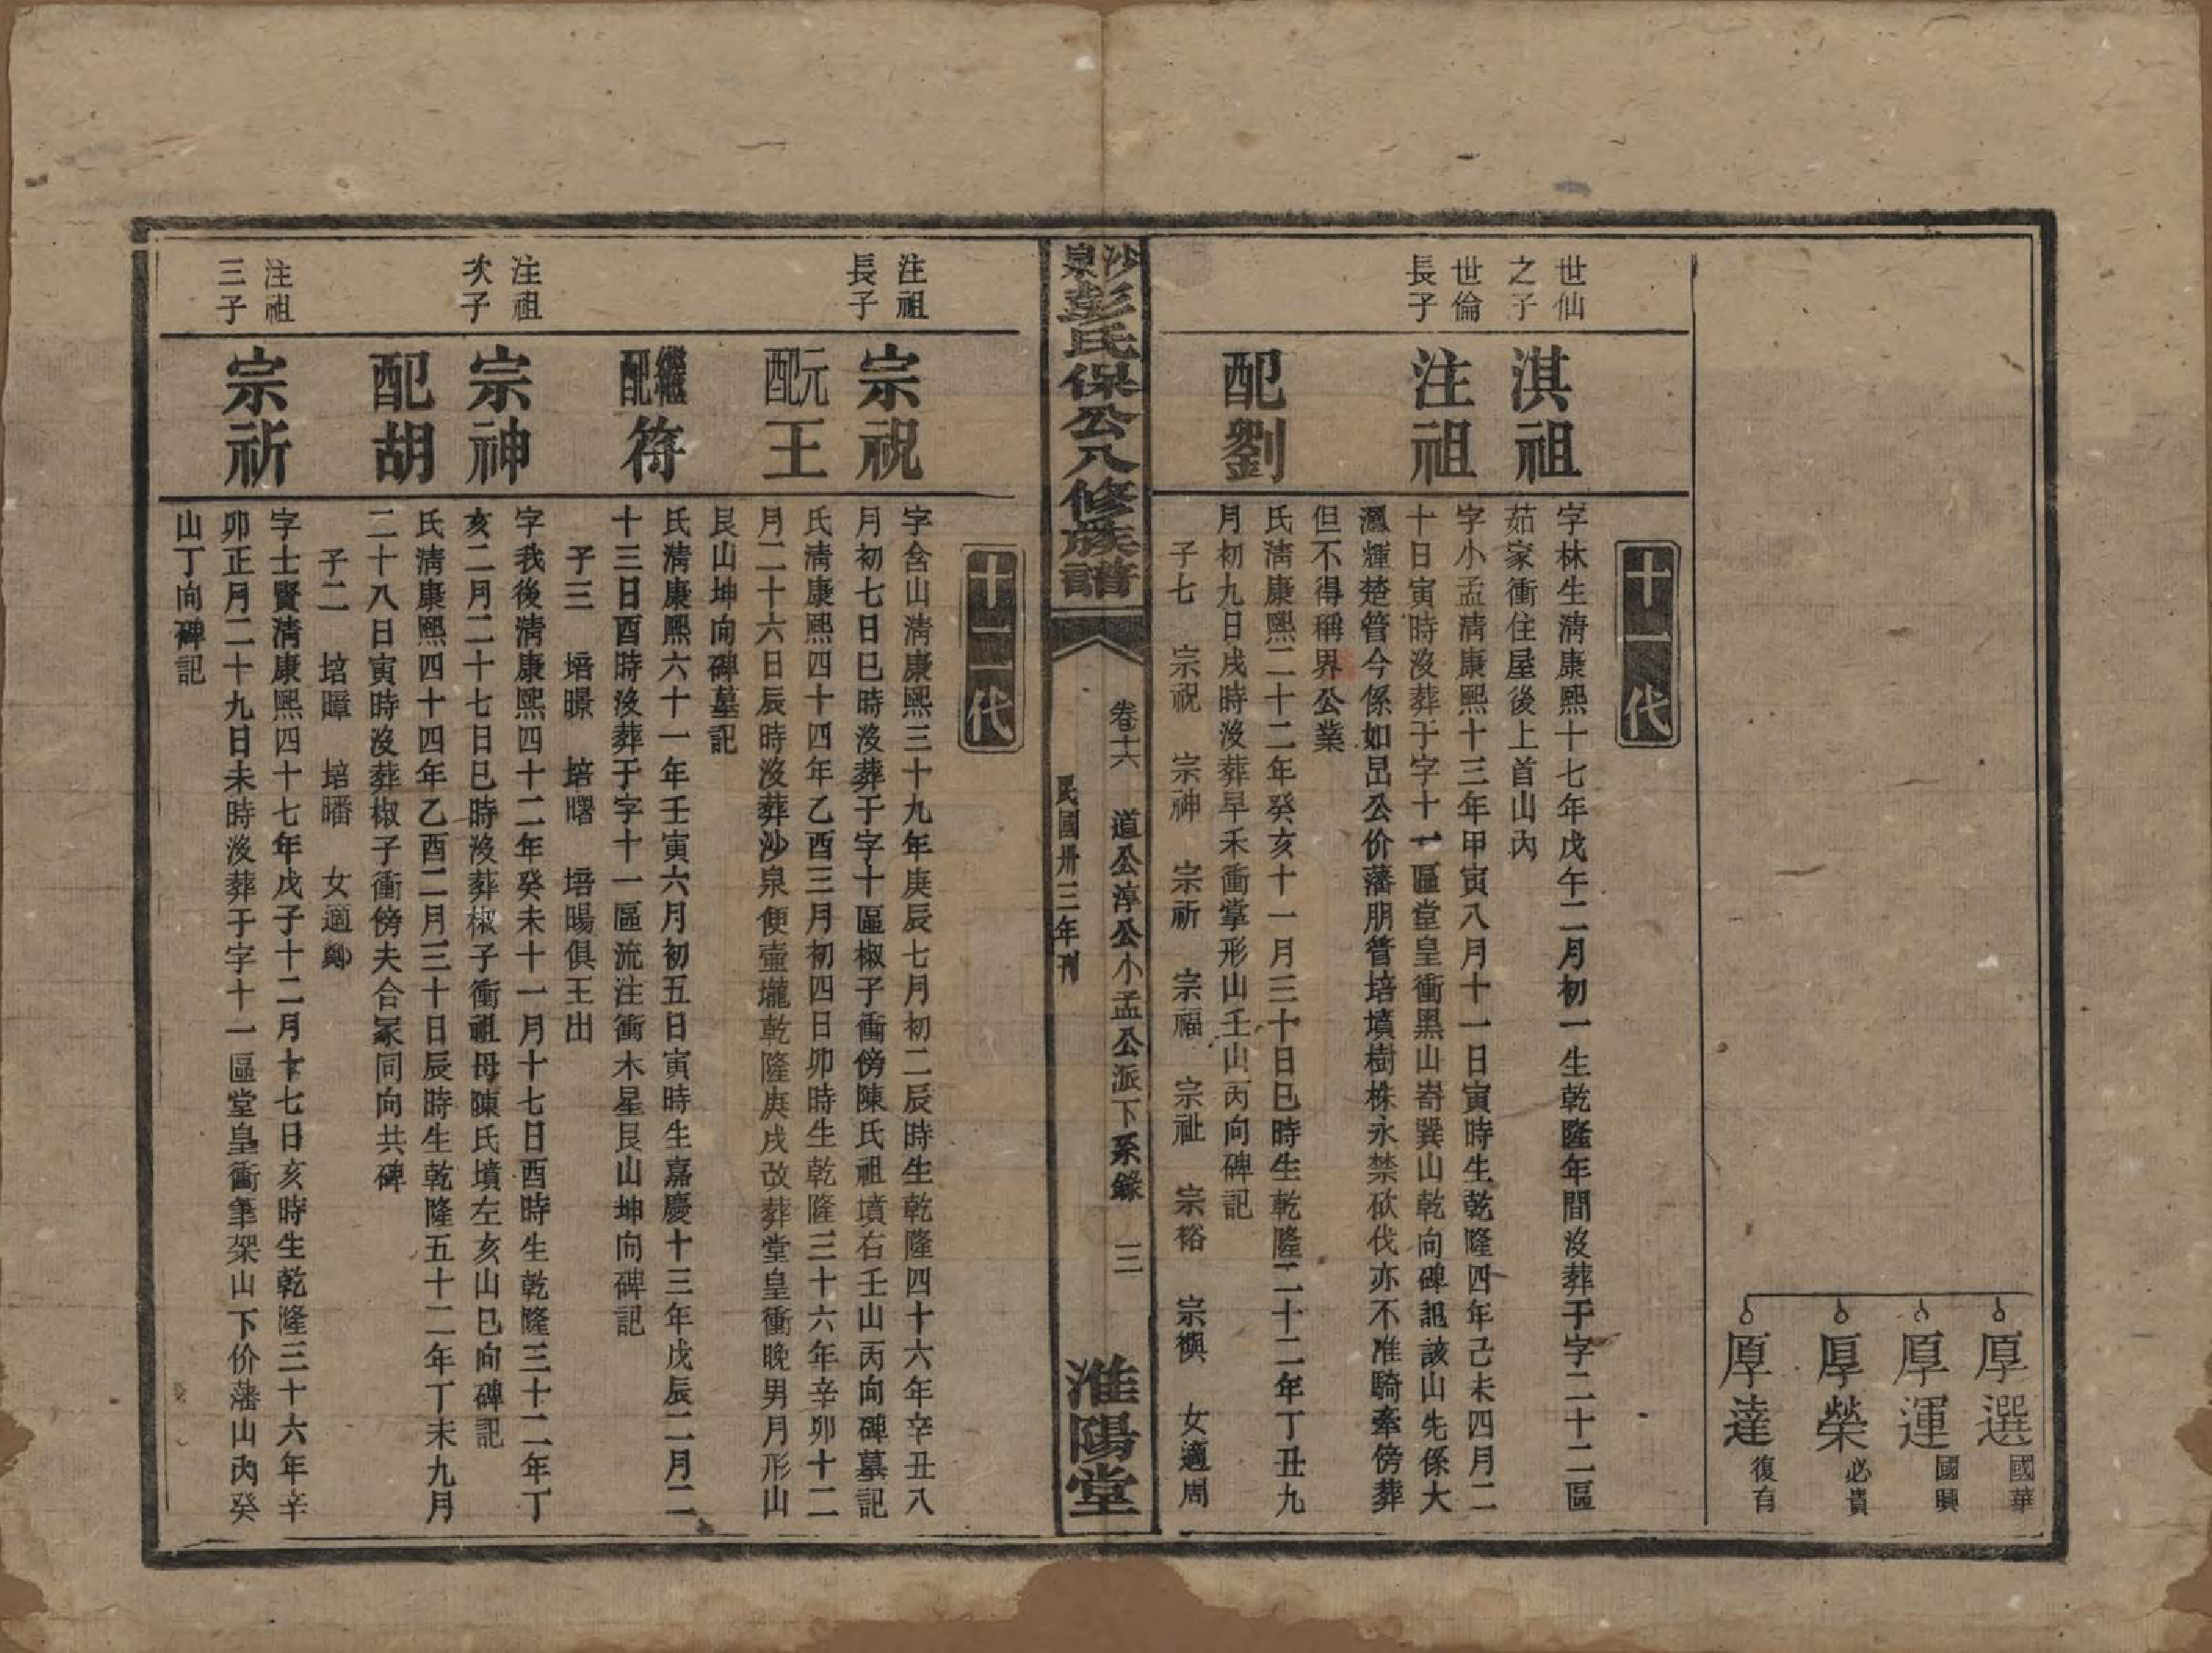 厚選 國華
厚運 國興
厚榮 必貴
厚達 復有
十一代
世仙之子
淇祖
字林生淸康熙十七年戊午二月初一生乾隆年間沒葬于字二十二區
茹家衝住屋後上首山內
世倫長子
注祖
字小孟淸康熙十三年甲寅八月十一日寅時生乾隆四年己未四月二
十日寅時沒葬于字十一區堂皇衝黑山嵜巽山乾向碑記該山先係大
灜輝楚管今係如岊公价藩朋管培墳樹株永禁砍伐亦不准騎牽傍葬
但不得稱界公業
配劉
氏淸康熙二十二年癸亥十一月三十日巳時生乾隆二十二年丁丑九
月初九日戌時沒葬早禾衝掌形山壬山丙向碑記
子七 宗祝 宗神 宗祈 宗福 宗祉 宗裕 宗襖 女適周
沙泉彭氏保公八修族譜
卷十六 道公淳公小孟公派下系錄 三
民國卅三年刊
淮陽堂
十二代
注祖長子
宗祝
字含山淸康熙三十九年庚辰七月初二辰時生乾隆四十六年辛丑八
月初七日巳時沒葬于字十區椒子衝傍陳氏祖墳右壬山丙向碑墓記
元配王
氏淸康熙四十四年乙酉三月初四日卯時生乾隆三十六年辛卯十二
月二十六日辰時沒葬沙泉便壼壠乾隆庚戌改葬堂皇衝晚男月形山
艮山坤向碑墓記
繼配符
氏淸康熙六十一年壬寅六月初五日寅時生嘉慶十三年戊辰二月二
十三日酉時沒葬于字十一區流注衝木星艮山坤向碑記
子三 培暻 培曙 培暘俱王出
注祖次子
宗神
字我後淸康熙四十二年癸未十一月十七日酉時生乾隆三十二年丁
亥二月二十七日巳時沒葬椒子衝祖母陳氏墳左亥山巳向碑記
配胡
氏淸康熙四十四年乙酉二月三十日辰時生乾隆五十二年丁未九月
二十八日寅時沒葬椒子衝傍夫合冢同向共碑
子二 培暲 培㬤 女適鄭
注祖三子
宗祈
字士賢淸康熙四十七年戊子十二月十七日亥時生乾隆三十六年辛
卯正月二十九日未時沒葬于字十一區堂皇衝筆架山下价藩山內癸
山丁向碑記